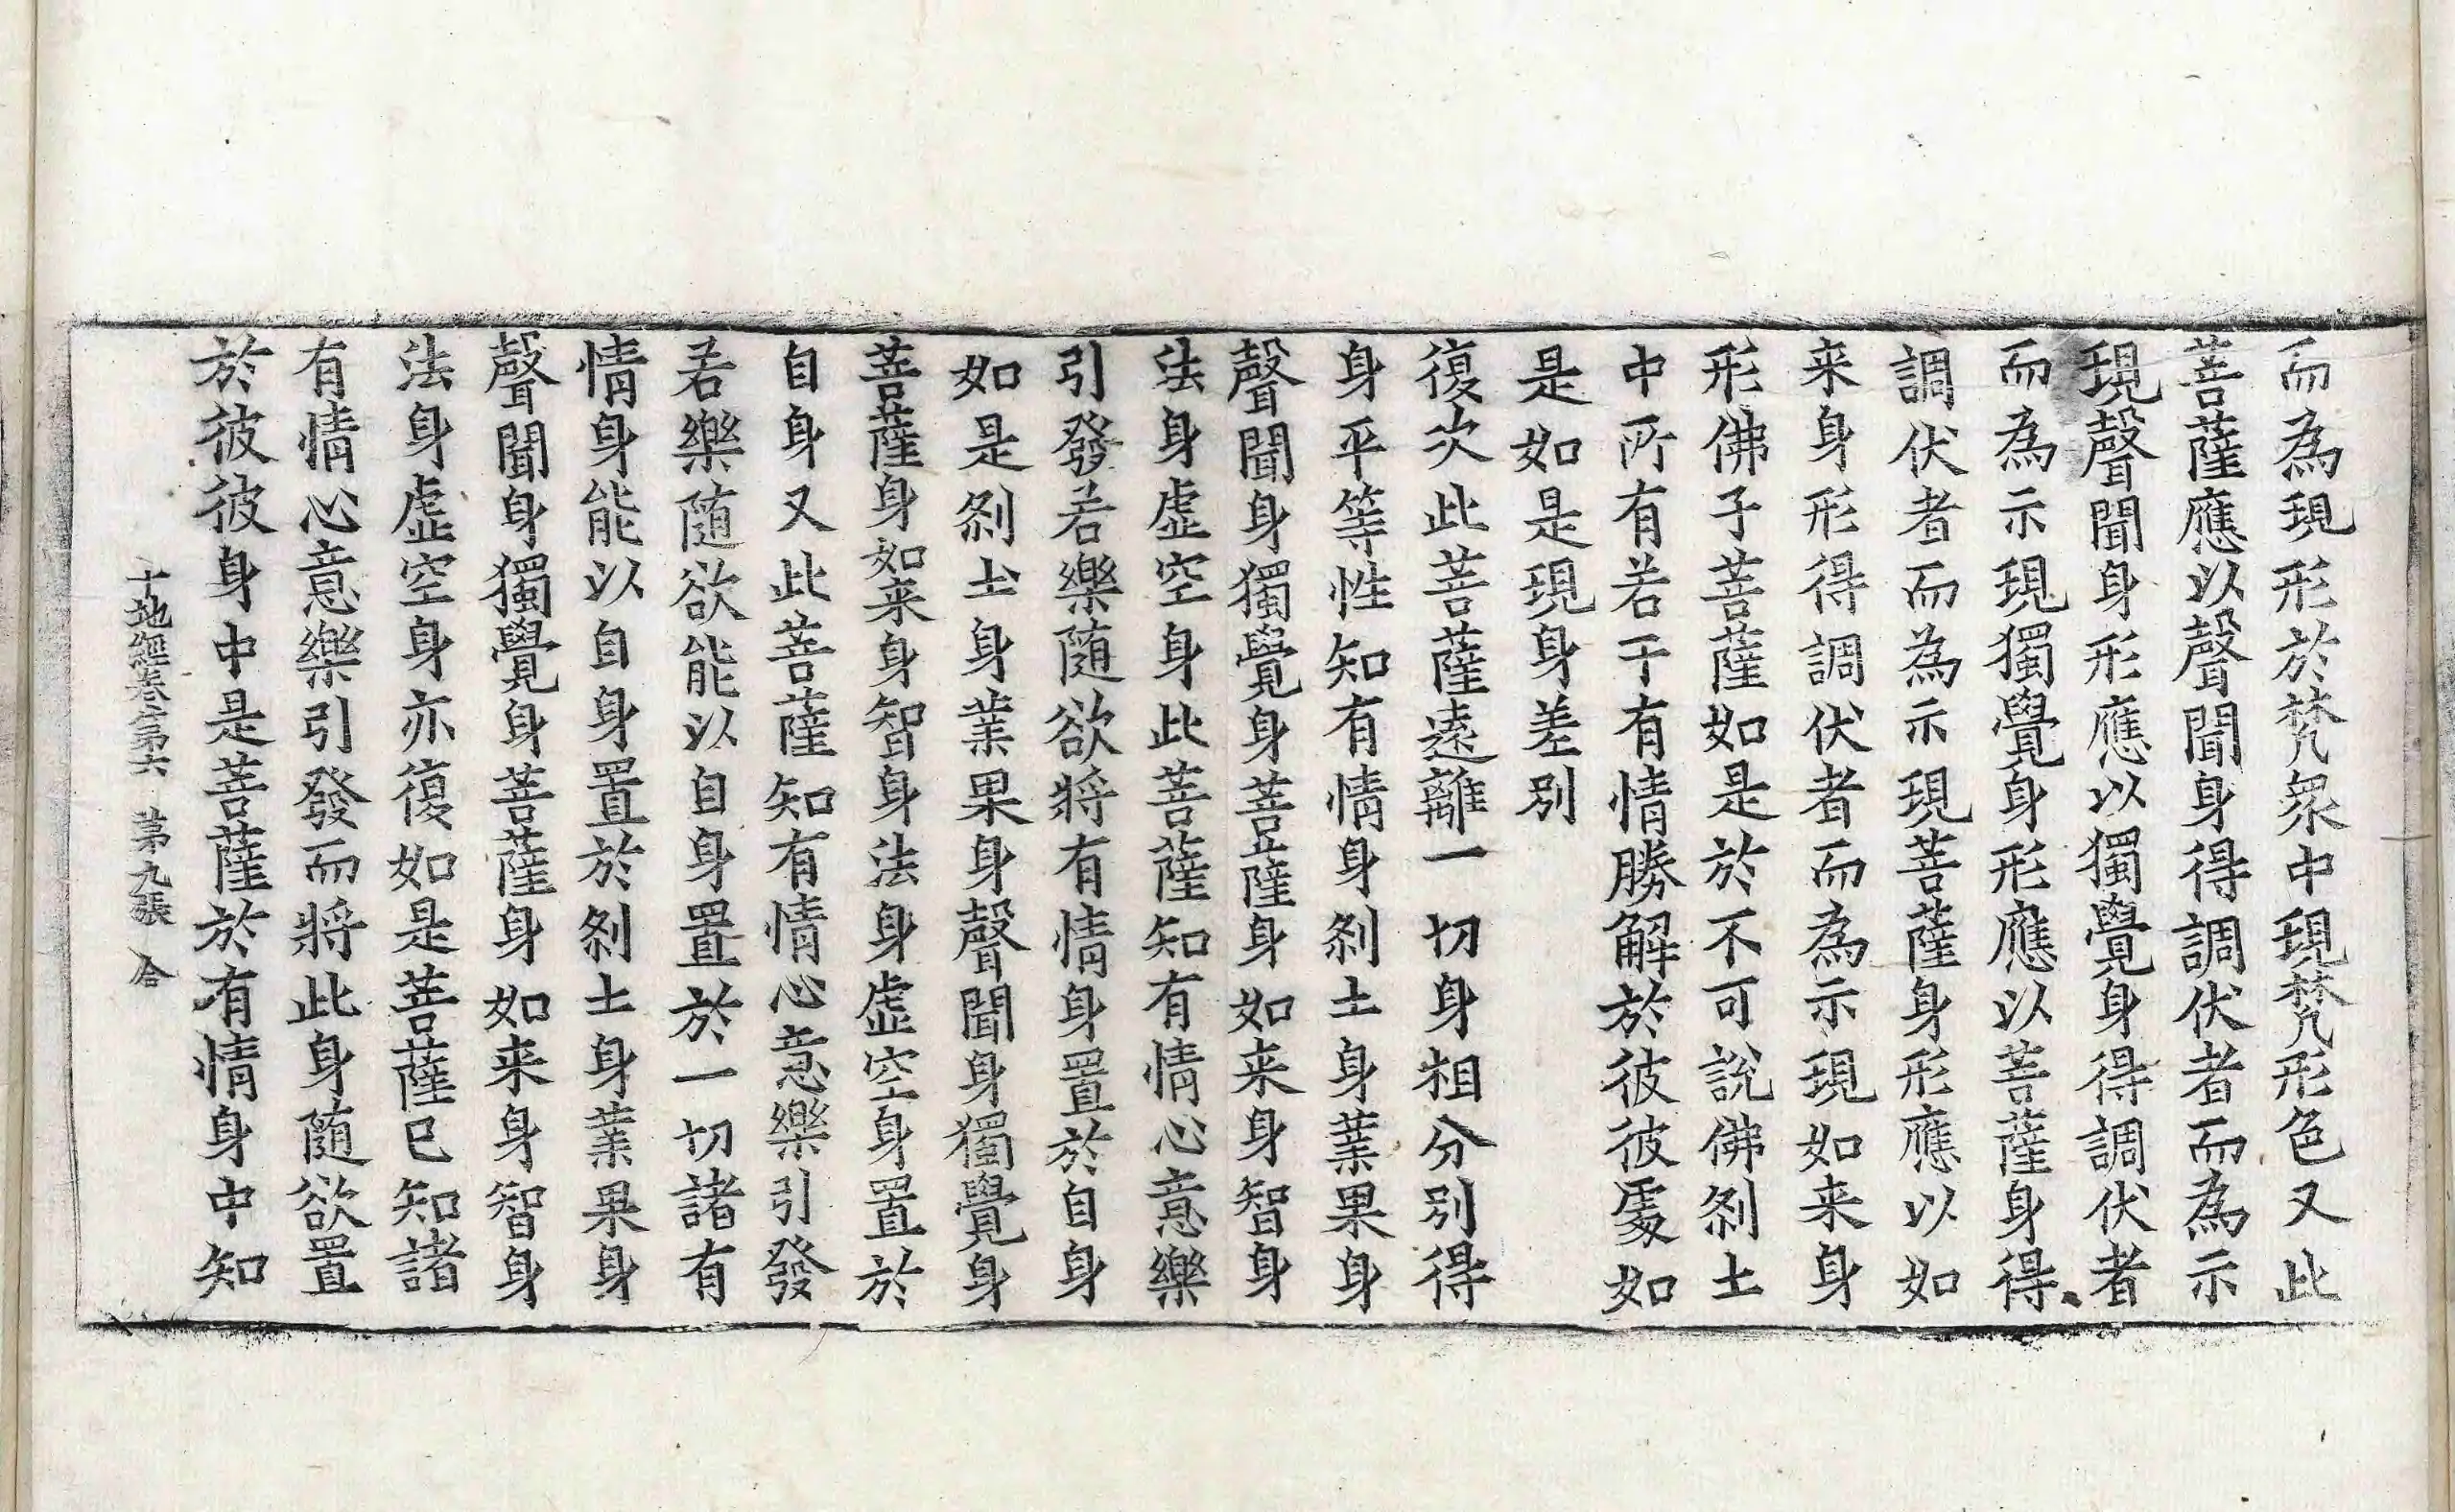 而為現形於梵衆中現梵形色又此
菩薩應以聲聞身得調伏者而為示
現聲聞身形應以獨覺身得調伏者
而為示現獨覺身形應以菩薩身得
調伏者而為示現菩薩身形應以如
来身形得調伏者而為示現如来身
形佛子菩薩如是於不可說佛刹土
中所有若干有情勝解於彼彼處如
是如是現身差別
復次此菩薩遠離一切身相分別得
身平等性知有情身刹土身業果身
聲聞身獨覺身菩薩身如来身智身
法身虛空身此菩薩知有情心意樂
引發若樂隨欲將有情身置於自身
如是刹土身業果身聲聞身獨覺身
菩薩身如来身智身法身虛空身置於
自身又此菩薩知有情心意樂引發
若樂隨欲能以自身置於一切諸有
情身能以自身置於刹土身業果身
聲聞身獨覺身菩薩身如来身智身
法身虛空身亦復如是菩薩已知諸
有情心意樂引發而將此身隨欲置
於彼彼身中是菩薩於有情身中知
十地經卷第六 第九張 合